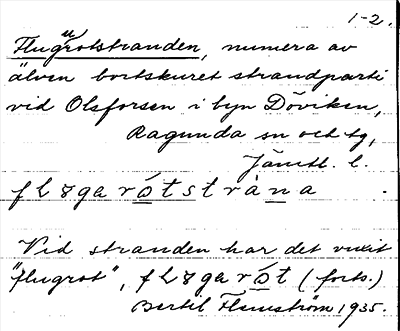 1-2.
Flugrotstranden, numera av
älven bortskuret strandparti
vid Olsforsen i byn Döviken,
Ragunda sn och tg,
Jämtl. l.
fløgarótstràna
Vid stranden har det vuxit
"flugrot", fløgarót (forts.)
Bertil Flemström 1935.